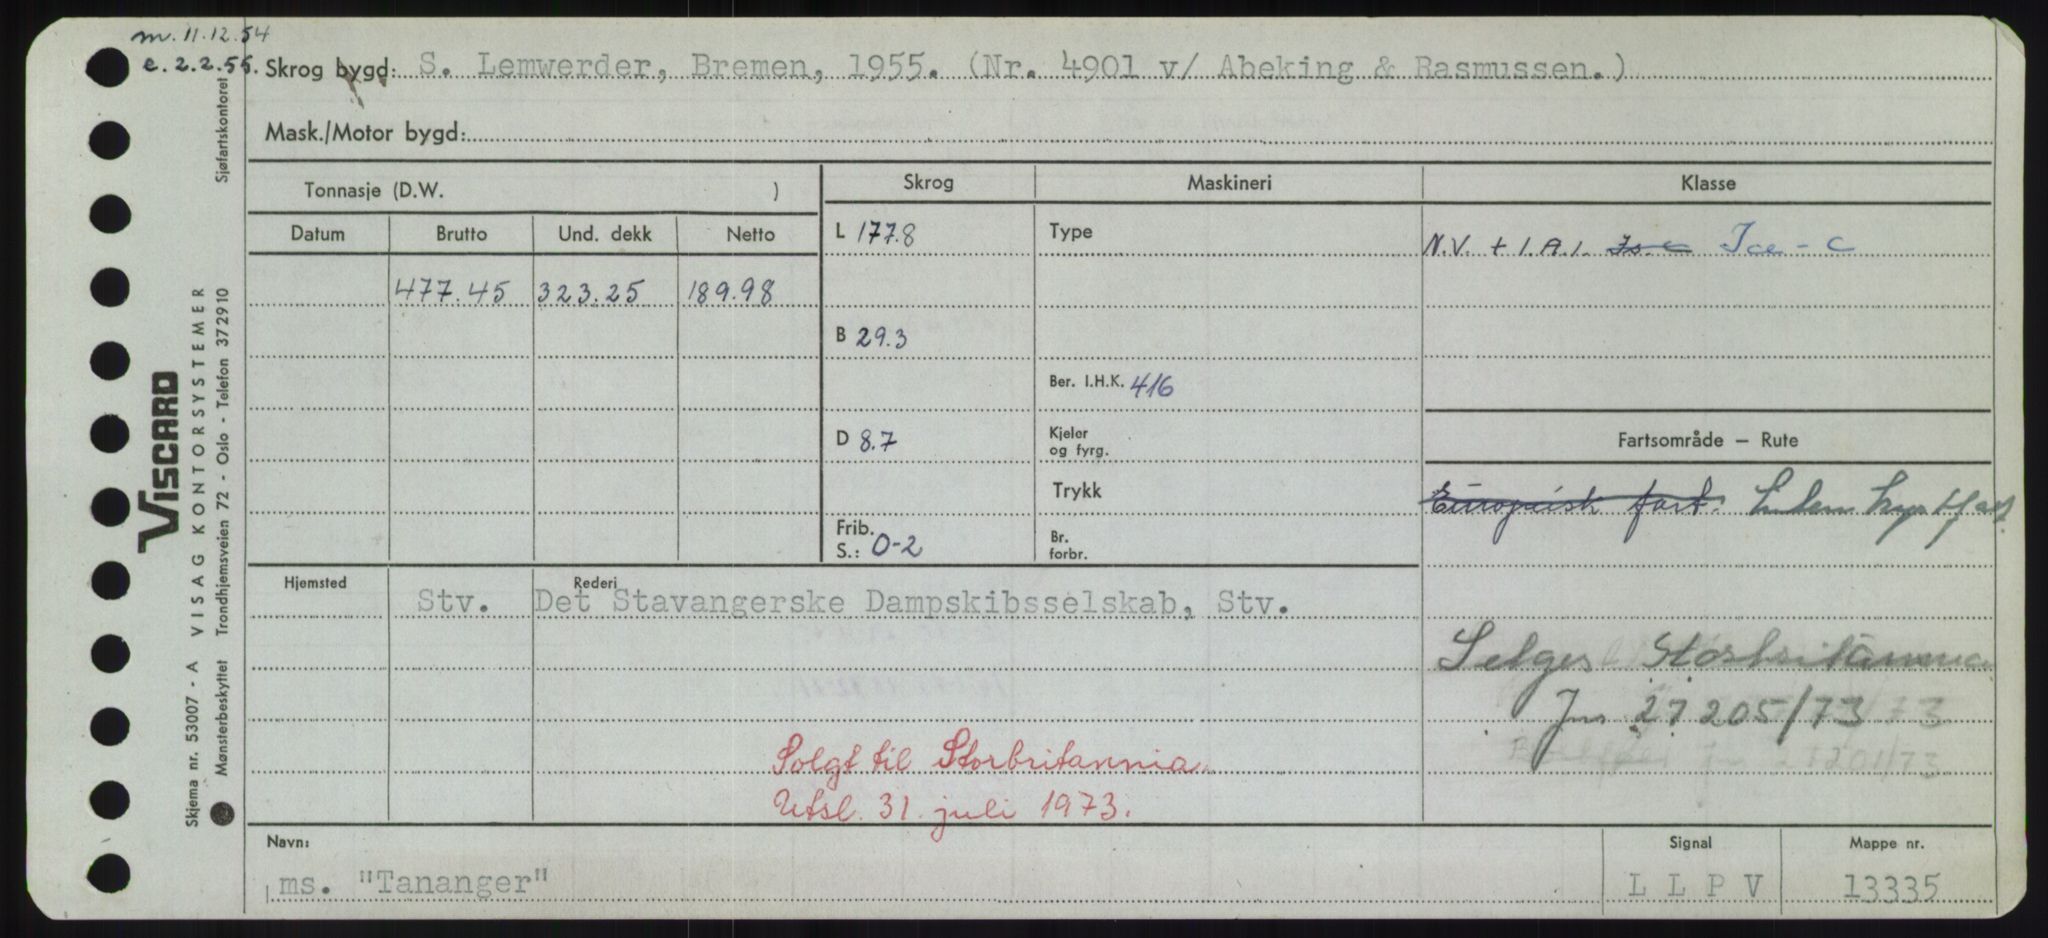 m. 11.12.54
e. 2.2.55.
Skrog bygd: S. Lemwerder, Bremen, 1955. (Nr. 4901 v/ Abeking & Rasmussen.)
Mask./Motor bygd:
Tonnasje (D.W. )
Skrog
Maskineri
Klasse
Datum Brutto Und. dekk Netto
L 177.8
Type
N.V. + 1.A.1. Is-C Ice-C
477.45 323.25 189.98
B 29.3
Ber. I.H.K. 416
D 8.7
Kjeler og fyrg.
Fartsområde – Rute
Trykk
Europeisk fart.
Frib. S.: 0-2
Br. forbr.
Hjemsted
Rederi
Stv. Det Stavangerske Dampskibsselskab, Stv.
Selges Storbritannia
Jnr 27205/73
Solgt til Storbritannia.
Utsl. 31. juli 1973.
Navn:
Signal
Mappe nr.
ms. "Tananger"
L L P V
13335
Skjema nr. 53007 - A VISAG KONTORSYSTEMER
Mønsterbeskyttet Trondhjemsveien 72 - Oslo - Telefon 37 29 10
Sjøfartskontoret
VISCARD